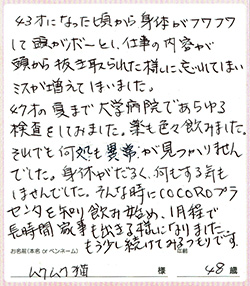 43才になった頃から身体がフワフワ
して頭がボーとし、仕事の内容が
頭から抜き取られた様に忘れてしまい
ミスが増えてしまいました。
47才の夏まで大学病院であらゆる
検査をしてみました。薬も色々飲みました。
それでも何処も異常が見つかりません
でした。身体がだるく、何もする気も
しませんでした。そんな時にCOCOROプラ
センタを知り飲み始め、1月程で
長時間家事も出きる様になりました。
もう少し続けてみるつもりです。
お名前(本名 or ペンネーム)
年齢
ムクムク猫 様 48 歳